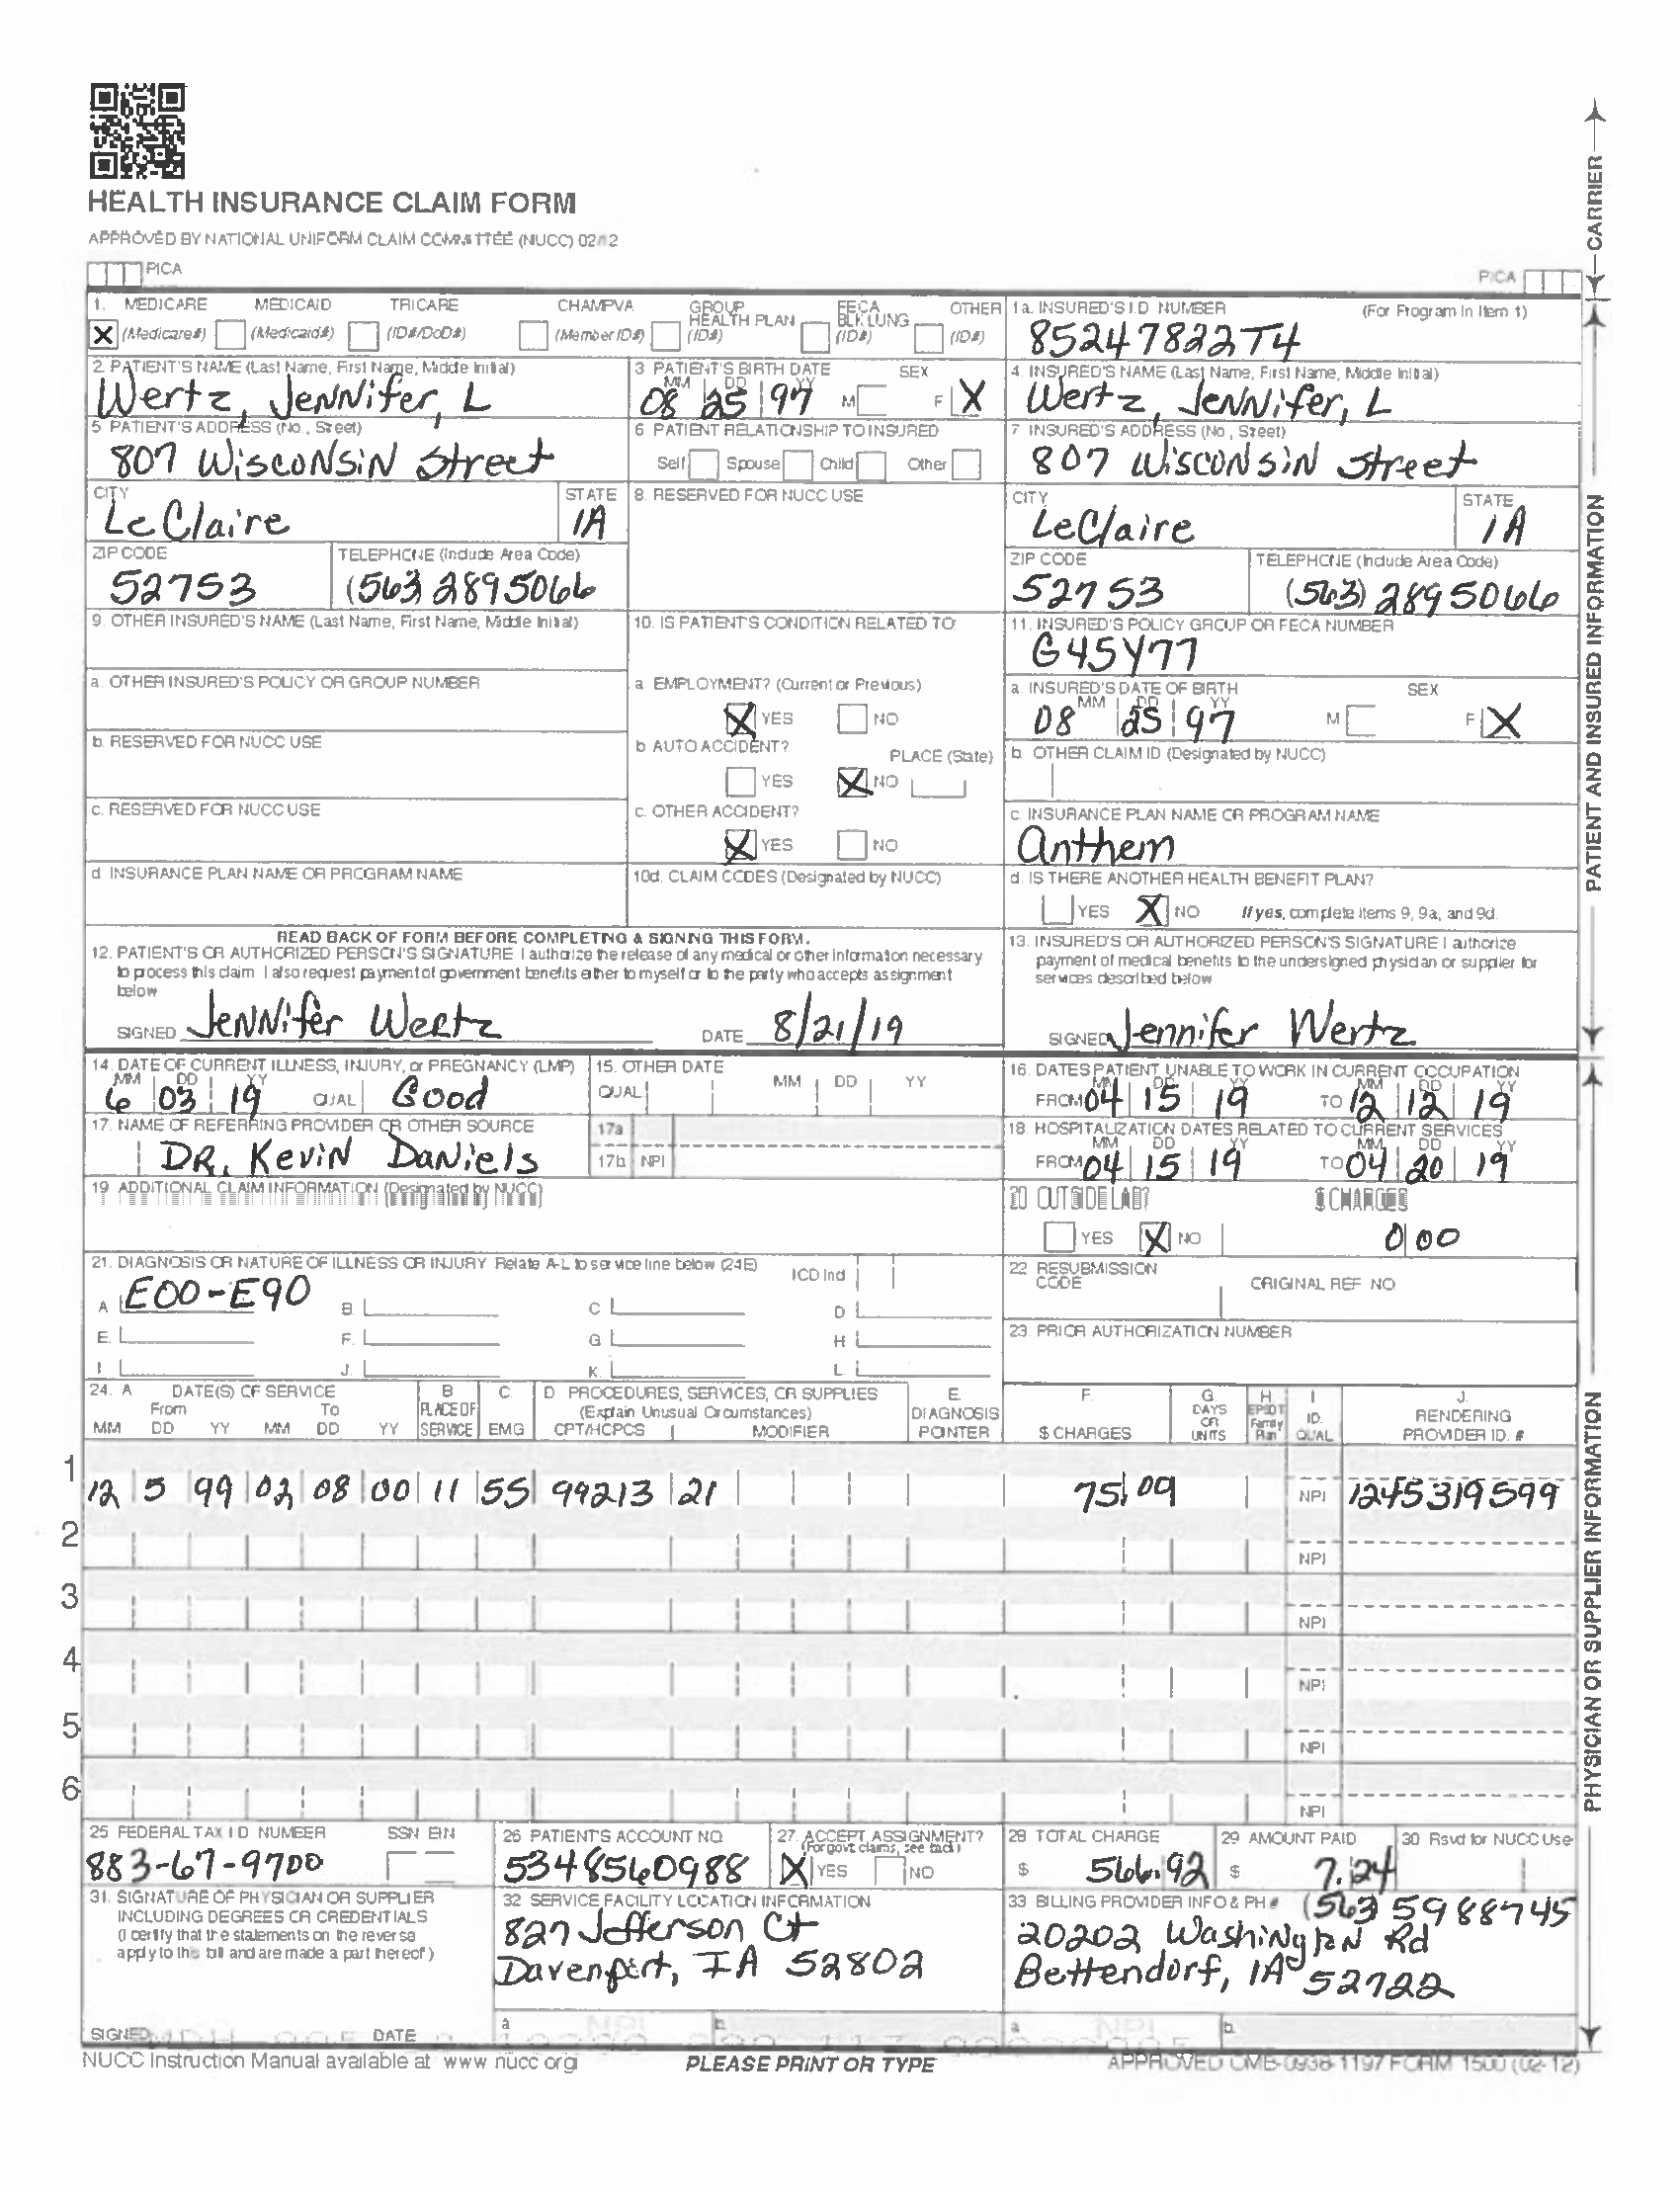 HEALTH INSURANCE CLAIM FORM
APPROVED BY NATIONAL UNIFORM CLAIM COMMITTEE (NUCC) 02/12
PICA
PICA
CARRIER
1. MEDICARE MEDICAID TRICARE CHAMPVA GROUP HEALTH PLAN FECA BLK LUNG OTHER
X (Medicare#) (Medicaid#) (ID#/DoD#) (Member ID#) (ID#) (ID#) (ID#)
1a. INSURED'S I.D NUMBER (For Program In Item 1)
85247822T4
2. PATIENT'S NAME (Last Name, First Name, Middle Initial)
Wertz, Jennifer, L
3 PATIENT'S BIRTH DATE SEX
MM DD YY
08 25 97 M F X
4. INSURED'S NAME (Last Name, First Name, Middle Initial)
Wertz, Jennifer, L
5 PATIENT'S ADDRESS (No., Street)
807 Wisconsin Street
6 PATIENT RELATIONSHIP TO INSURED
Self Spouse Child Other
7 INSURED'S ADDRESS (No, Street)
807 Wisconsin Street
CITY STATE
LeClaire IA
8. RESERVED FOR NUCC USE
CITY STATE
LeClaire IA
ZIP CODE TELEPHONE (Include Area Code)
52753 (563 2895066
ZIP CODE TELEPHONE (Include Area Code)
52753 (563) 2895066
9. OTHER INSURED'S NAME (Last Name, First Name, Middle Initial)
10. IS PATIENT'S CONDITION RELATED TO:
11. INSURED'S POLICY GROUP OR FECA NUMBER
G45Y77
a. OTHER INSURED'S POLICY OR GROUP NUMBER
a EMPLOYMENT? (Current or Previous)
X YES NO
a. INSURED'S DATE OF BIRTH SEX
MM DD YY
08 25 97 M F X
b. RESERVED FOR NUCC USE
b AUTO ACCIDENT? PLACE (State)
YES X NO
b. OTHER CLAIM ID (Designated by NUCC)
c. RESERVED FOR NUCC USE
c. OTHER ACCIDENT?
X YES NO
c. INSURANCE PLAN NAME OR PROGRAM NAME
Anthem
d INSURANCE PLAN NAME OR PROGRAM NAME
10d. CLAIM CODES (Designated by NUCC)
d. IS THERE ANOTHER HEALTH BENEFIT PLAN?
YES X NO If yes, complete items 9, 9a, and 9d.
READ BACK OF FORM BEFORE COMPLETING & SIGNING THIS FORM.
12. PATIENT'S OR AUTHORIZED PERSON'S SIGNATURE I authorize the release of any medical or other information necessary
to process this claim I also request payment of government benefits either to myself or to the party who accepts assignment
below
SIGNED Jennifer Wertz DATE 8/21/19
13. INSURED'S OR AUTHORIZED PERSON'S SIGNATURE I authorize
payment of medical benefits to the undersigned physician or supplier for
services described below
SIGNED Jennifer Wertz
PATIENT AND INSURED INFORMATION
14. DATE OF CURRENT ILLNESS, INJURY, or PREGNANCY (LMP)
MM DD YY
6 03 19 QUAL Good
15. OTHER DATE
QUAL MM DD YY
16. DATES PATIENT UNABLE TO WORK IN CURRENT OCCUPATION
MM DD YY MM DD YY
FROM 04 15 19 TO 12 12 19
17. NAME OF REFERRING PROVIDER OR OTHER SOURCE
DR. Kevin Daniels
17a
17b NPI
18. HOSPITALIZATION DATES RELATED TO CURRENT SERVICES
MM DD YY MM DD YY
FROM 04 15 19 TO 04 20 19
19 ADDITIONAL CLAIM INFORMATION (Designated by NUCC)
20 OUTSIDE LAB? $ CHARGES
YES X NO 0 00
21. DIAGNOSIS OR NATURE OF ILLNESS OR INJURY Relate A-L to service line below (24E) ICD Ind
A E00-E90 B. C D
E. F. G H
I. J. K. L.
22 RESUBMISSION CODE ORIGINAL REF NO
23. PRIOR AUTHORIZATION NUMBER
24. A DATE(S) OF SERVICE B C. D PROCEDURES, SERVICES, OR SUPPLIES E. F. G. H I J.
From To PLACE OF (Explain Unusual Circumstances) DIAGNOSIS DAYS OR UNITS EPSDT Family Plan ID. RENDERING
MM DD YY MM DD YY SERVICE EMG CPT/HCPCS MODIFIER POINTER $ CHARGES QUAL PROVIDER ID. #
1
12 5 99 02 08 00 11 55 99213 21 75.09 NPI 1245319599
2
NPI
3
NPI
4
NPI
5
NPI
6
NPI
PHYSICIAN OR SUPPLIER INFORMATION
25 FEDERAL TAX I D NUMBER SSN EIN
883-67-9700
26 PATIENT'S ACCOUNT NO
5348560988
27. ACCEPT ASSIGNMENT?
(For govt claims, see back)
X YES NO
28 TOTAL CHARGE
$ 566.92
29 AMOUNT PAID
$ 7.24
30 Rsvd for NUCC Use
31. SIGNATURE OF PHYSICIAN OR SUPPLIER
INCLUDING DEGREES OR CREDENTIALS
(I certify that the statements on the reverse
apply to this bill and are made a part thereof)
SIGNED DATE
32 SERVICE FACILITY LOCATION INFORMATION
827 Jefferson Ct
Davenport, IA 52802
a NPI b
33 BILLING PROVIDER INFO & PH # (563 5988745
20202 Washington Rd
Bettendorf, IA 52722
a NPI b
NUCC Instruction Manual available at www nucc org
PLEASE PRINT OR TYPE
APPROVED OMB-0938-1197 FORM 1500 (02-12)